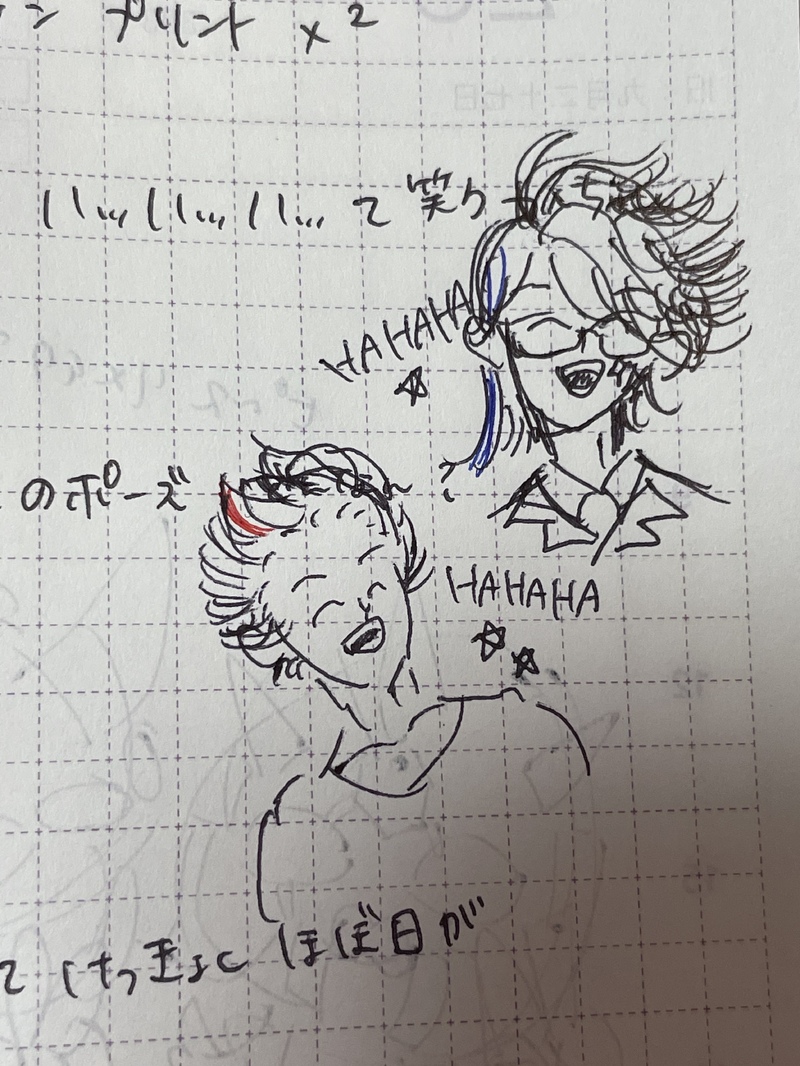 ン プリント x2
ハッハッハッ… て笑う
HAHAHA
のポーズ
HAHAHA
て けっきょく ほぼ日が